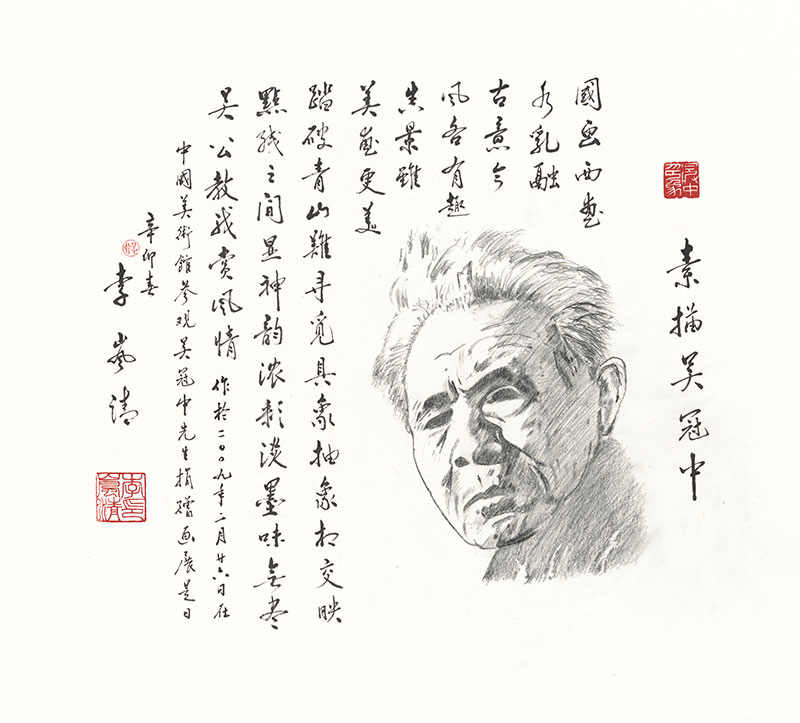 素描吴冠中
國画西畫
水乳融
古意今
風各有趣
景雖
美画更美
踏破青山難寻覓具象抽象相交映
點线之间显神韵浓彩淡墨味无尽
吴公教我赏风情 作於二〇〇九年二月廿六日在
中國美術館參观吴冠中先生捐赠画展是日
辛卯春
李岚清